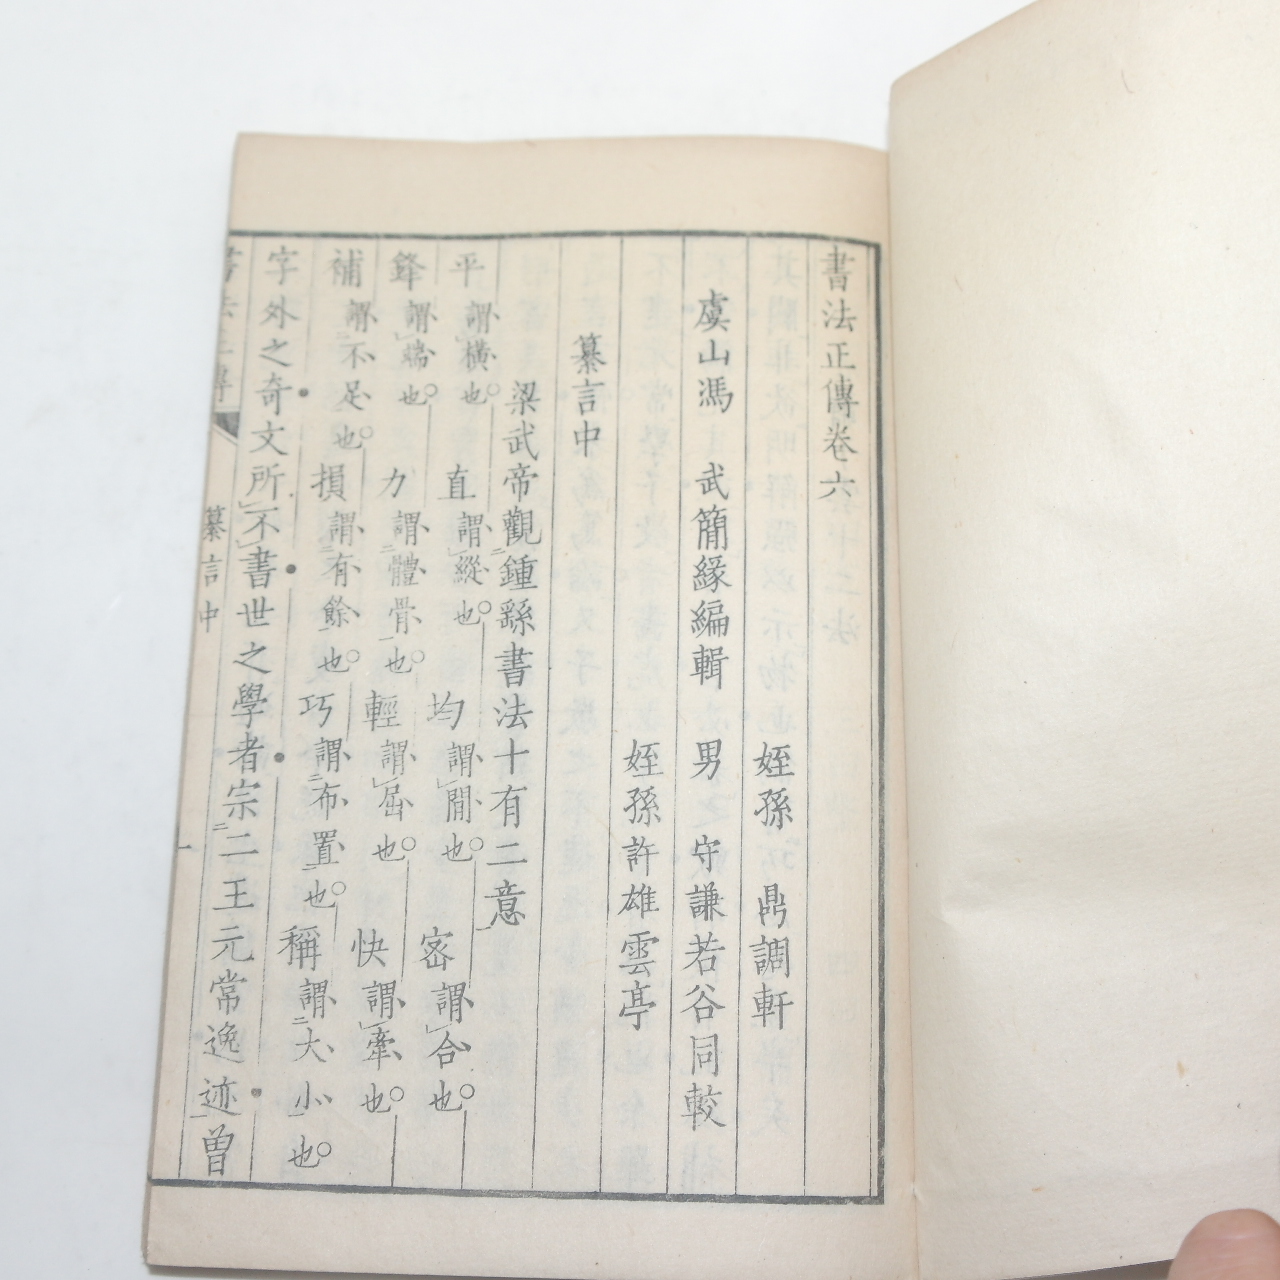 書法正傳卷六
姪孫 鼎調軒
虞山馮 武簡緣編輯 男 守謙若谷同較
姪孫許雄雲亭
纂言中
梁武帝觀鍾繇書法十有二意
平謂橫也 直謂縱也 均謂間也 密謂合也
鋒謂端也 力謂體骨也 輕謂屈也 快謂牽也
補謂不足也 損謂有餘也 巧謂布置也 稱謂大小也
字外之奇文所不書世之學者宗二王元常逸迹曾
書法正傳 纂言中 一